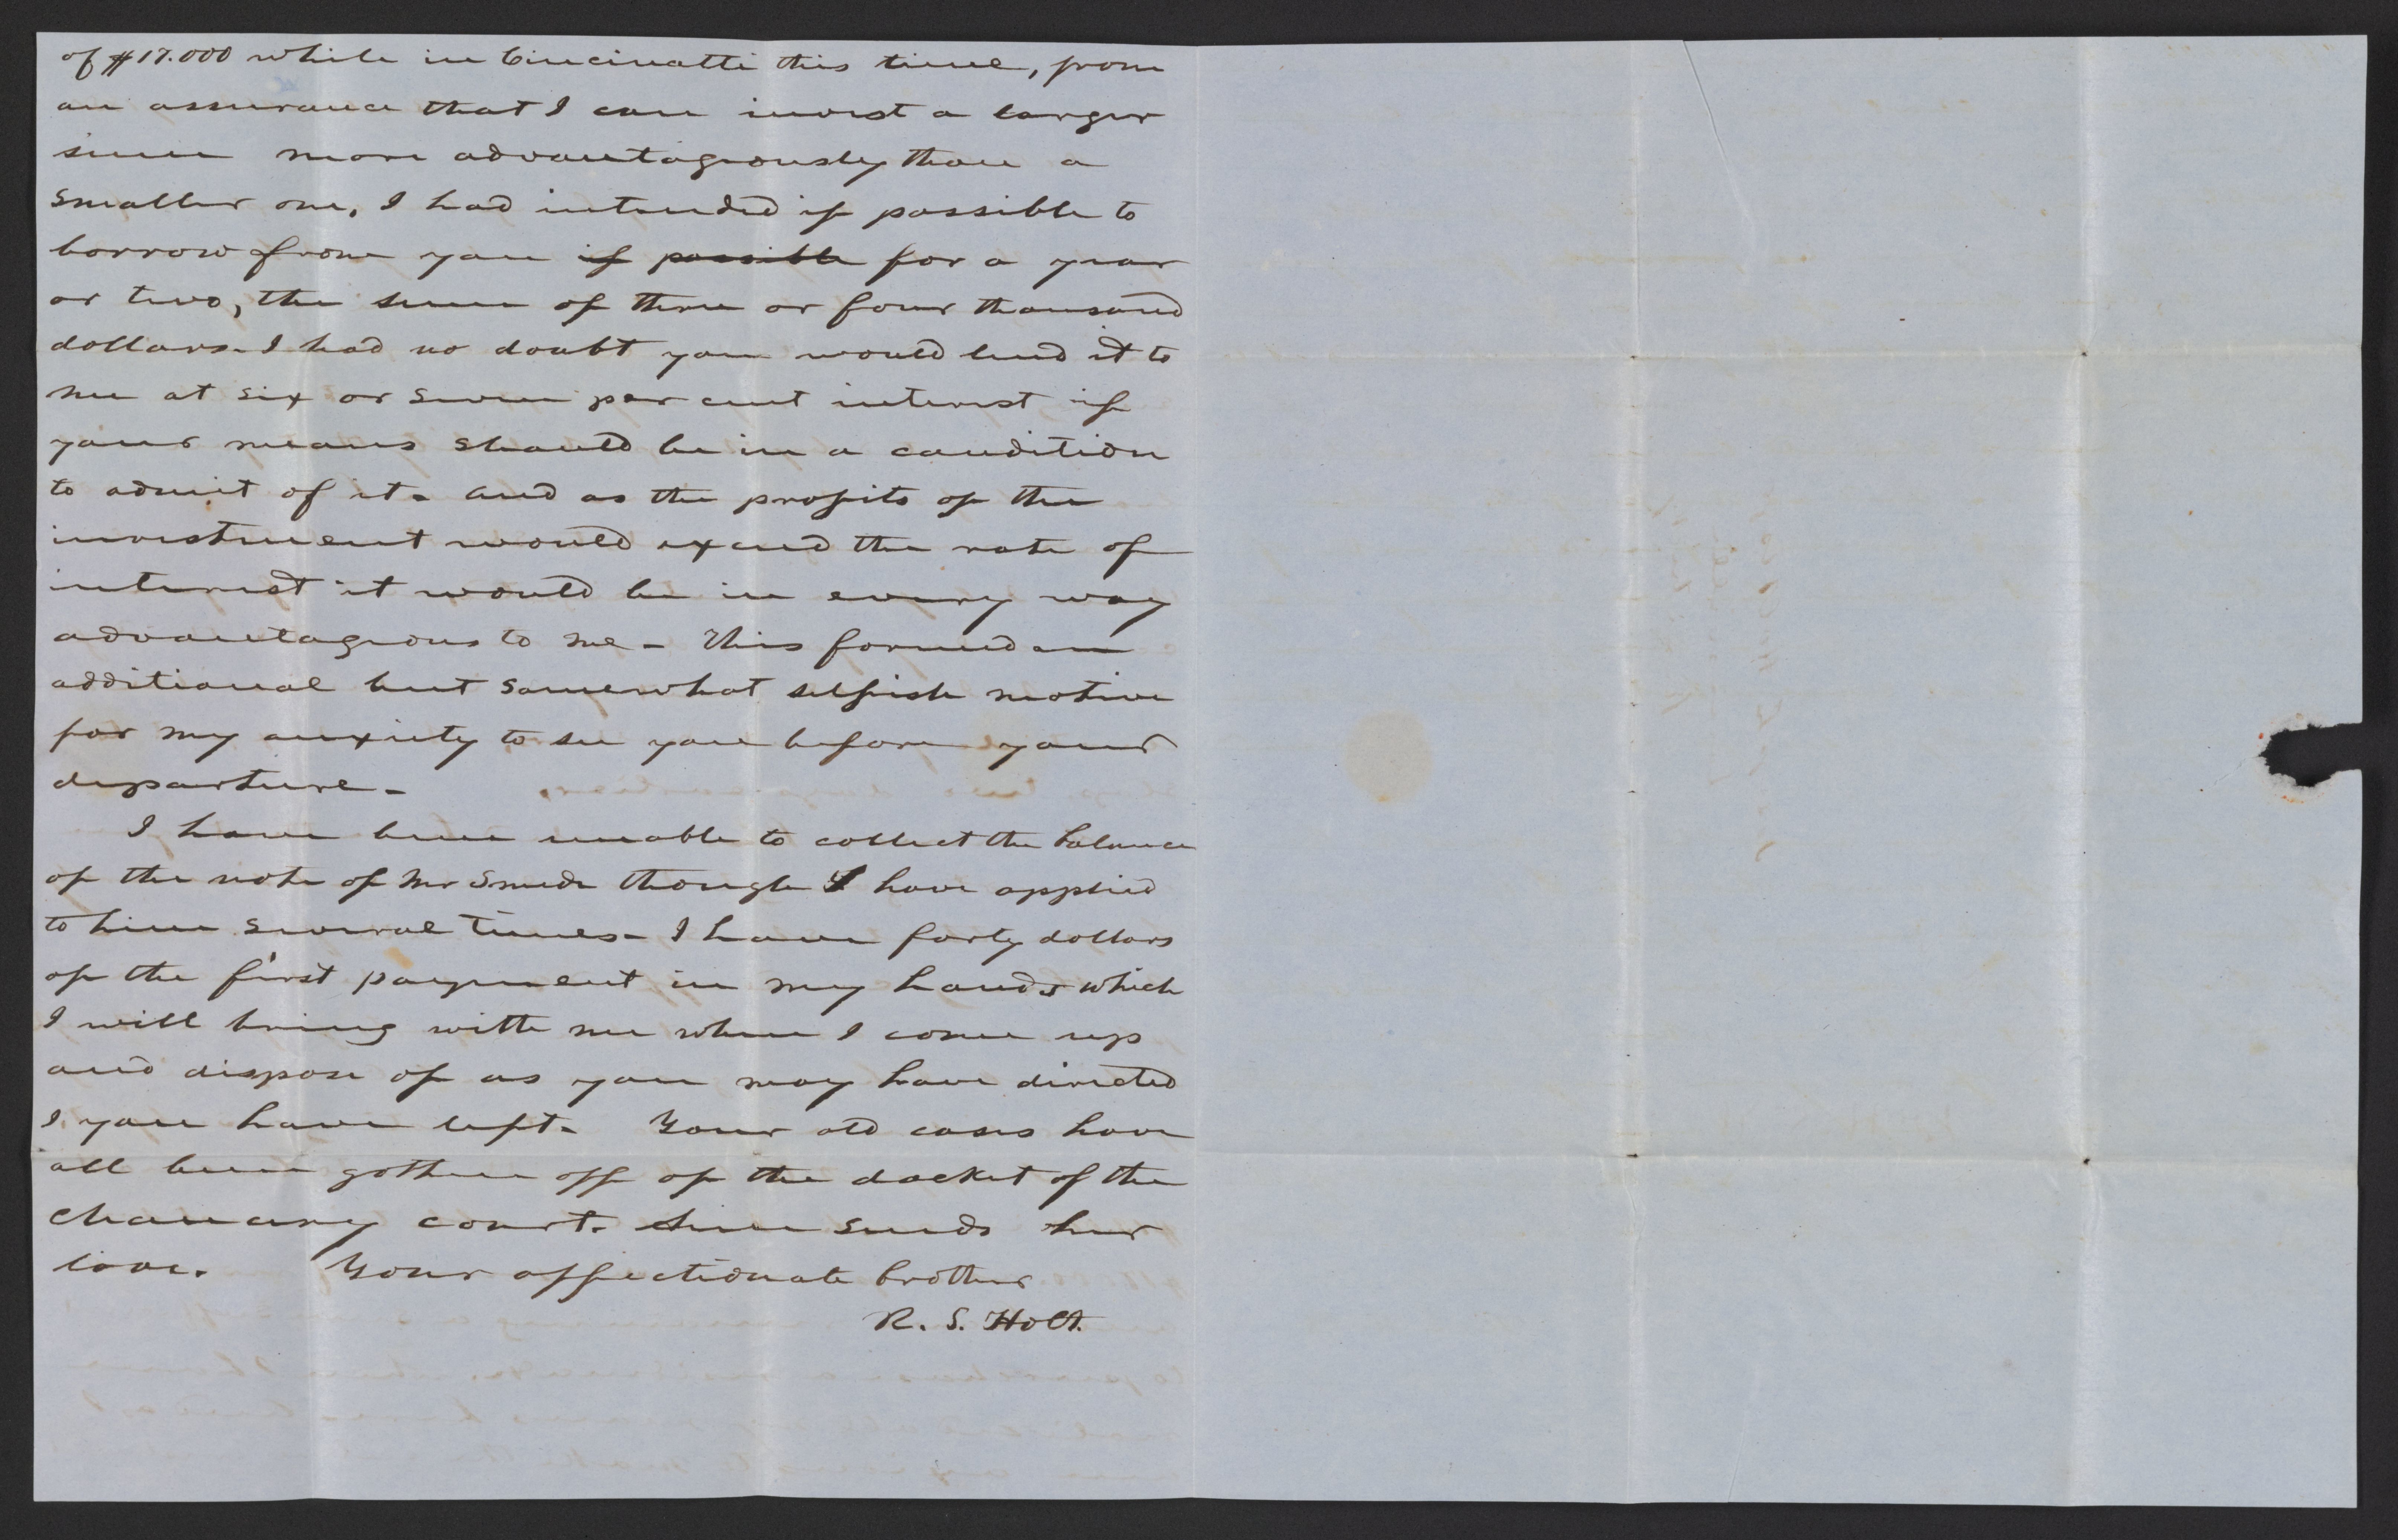 of $17.000 while in Cincinatti this time, from
an assurance that I can invest a larger
sum more advantageously than a
smaller one. I had intended if possible to
borrow from you if possible for a year
or two, the sum of three or four thousand
dollars. I had no doubt you would lend it to
me at six or seven per cent interest if
your means should be in a condition
to admit of it. And as the profits of the
investment would exceed the rate of
interest it would be in every way
advantageous to me - This formed an
additional but somewhat selfish motive
for my anxiety to see you before your
departure -
I have been unable to collect the balance
of the note of Mr Smede though I have applied
to him several times - I have forty dollars
of the first payment in my hands which
I will bring with me when I come up
and dispose of as you may have directed
I you have left. Your old cases have
all been gotten off of the docket of the
Chancery court. Ann sends her
love. Your affectionate brother
R. S. Holt.